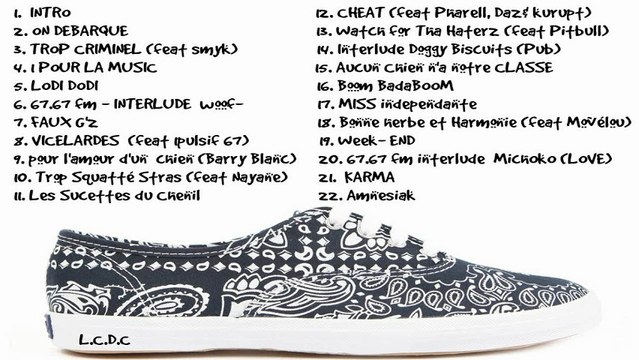 1. INTRO
2. ON DEBARQUE
3. TROP CRIMINEL (feat smyk)
4. 1 POUR LA MUSIC
5. LODI DODI
6. 67.67 fm - INTERLUDE woof-
7. FAUX G'Z
8. VICELARDES (feat Ipulsif 67)
9. pour l'amour d'un chien (Barry Blanc)
10. Trop Squatté Stras (feat Nayane)
11. Les Sucettes du Chenil
12. CHEAT (feat Pharell, Daz & Kurupt)
13. Watch for Tha Haterz (feat Pitbull)
14. Interlude Doggy Biscuits (Pub)
15. Aucun Chien n'a notre CLASSE
16. Boom BadaBooM
17. MISS independante
18. Bonne herbe et Harmonie (feat Movélou)
19. Week- END
20. 67.67 fm interlude Michoko (LoVE)
21. KARMA
22. Amnesiak
L.C.D.C